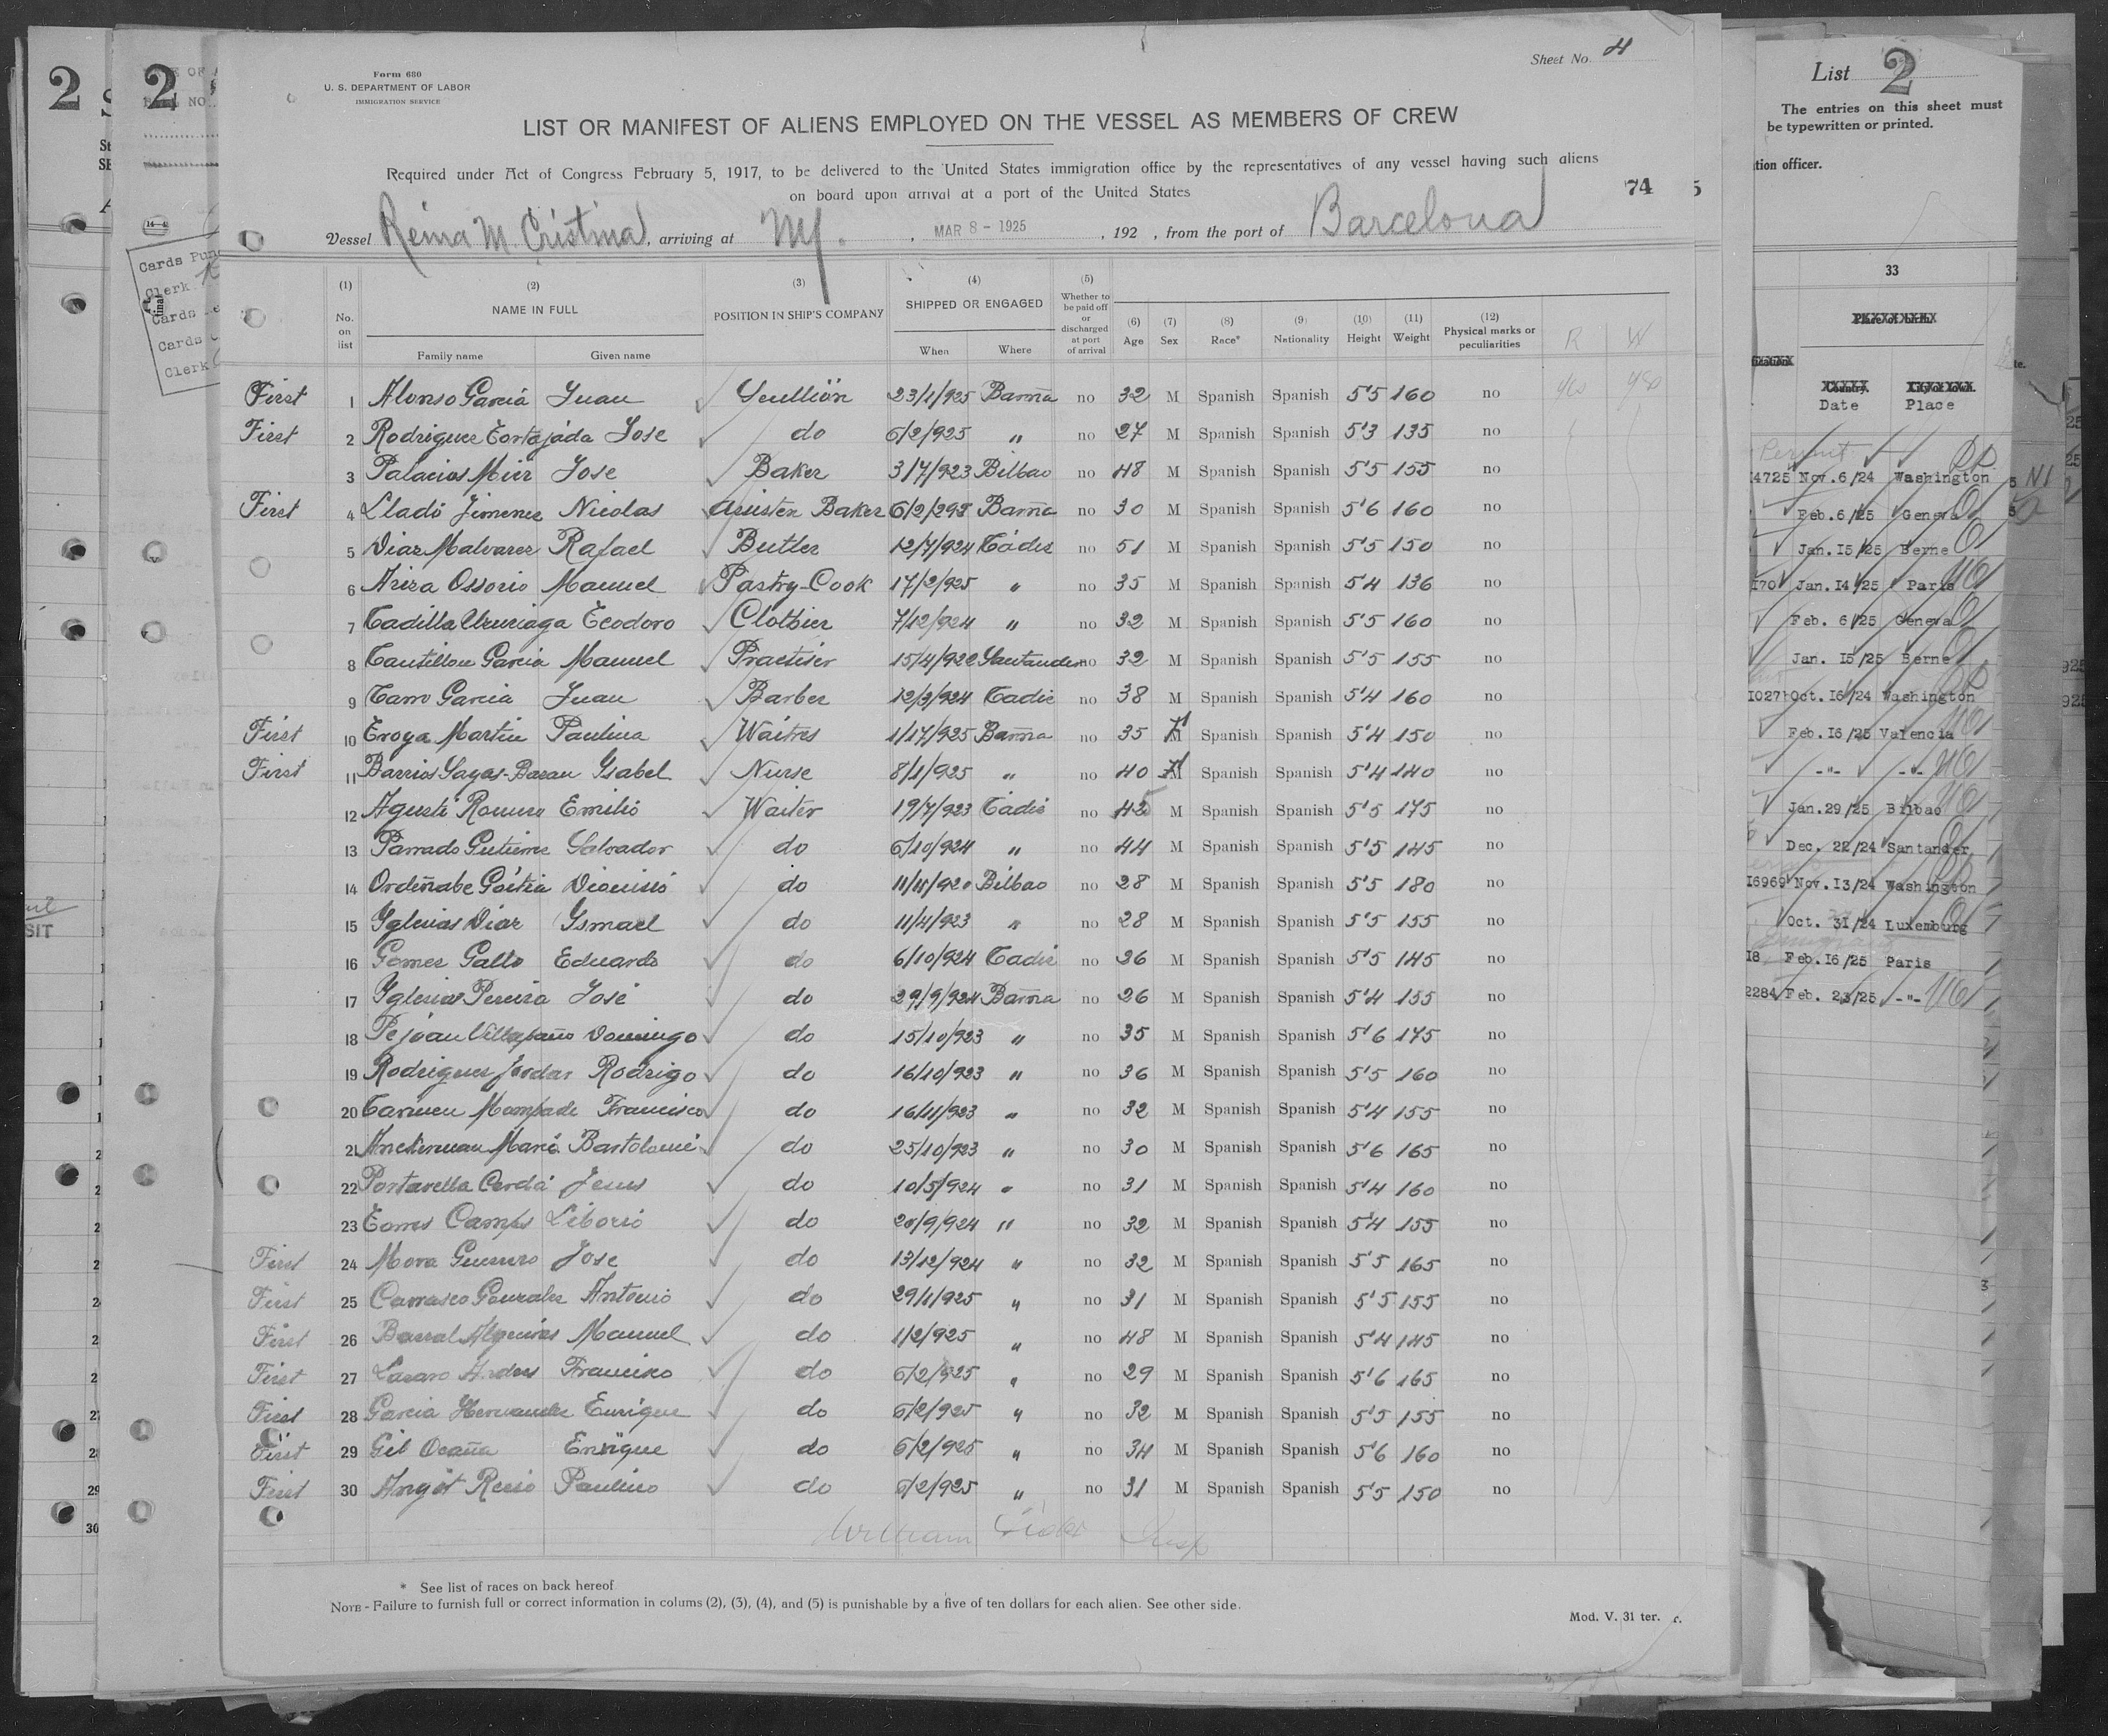 Form 680
U. S. DEPARTMENT OF LABOR
IMMIGRATION SERVICE
Sheet No. 4
LIST OR MANIFEST OF ALIENS EMPLOYED ON THE VESSEL AS MEMBERS OF CREW
Required under Act of Congress February 5, 1917, to be delivered to the United States immigration office by the representatives of any vessel having such aliens
on board upon arrival at a port of the United States
74 5
Vessel Reina M. Cristina, arriving at NY. , MAR 8 - 1925 , 192 , from the port of Barcelona
(1) No. on list (2) NAME IN FULL Family name Given name (3) POSITION IN SHIP'S COMPANY (4) SHIPPED OR ENGAGED When Where (5) Whether to be paid off or discharged at port of arrival (6) Age (7) Sex (8) Race* (9) Nationality (10) Height (11) Weight (12) Physical marks or peculiarities R W
First 1 Alonso Garcia Juan Scullion 23/1/925 Barña no 32 M Spanish Spanish 5'5 160 no yes yes
First 2 Rodriguez Tortajada Jose do 6/2/925 " no 27 M Spanish Spanish 5'3 135 no
3 Palacios Mier Jose Baker 3/7/923 Bilbao no 48 M Spanish Spanish 5'5 155 no
First 4 Lladó Jimenez Nicolas Baker Barña no 30 M Spanish Spanish 5'6 160 no
5 Diaz Malvarez Rafael Butler 12/7/924 Cádiz no 51 M Spanish Spanish 5'5 150 no
6 Ariza Ossorio Manuel Pastry-Cook 17/2/925 " no 35 M Spanish Spanish 5'4 136 no
7 Cadilla Teodoro Clothier 7/12/924 " no 32 M Spanish Spanish 5'5 160 no
8 Garcia Manuel Practiser Santander no 32 M Spanish Spanish 5'5 155 no
9 Garcia Juan Barber 12/3/924 Cadiz no 38 M Spanish Spanish 5'4 160 no
First 10 Martin Paulina Waitres Barña no 35 Spanish Spanish 5'4 150 no
First 11 Barrios Isabel Nurse 8/1/925 " no 40 Spanish Spanish 5'4 140 no
12 Agusti Romero Emilio Waiter 19/7/923 Cádiz no 42 M Spanish Spanish 5'5 175 no
13 Parrado Gutierrez Salvador do 6/10/924 " no 44 M Spanish Spanish 5'5 145 no
14 Dionisio do Bilbao no 28 M Spanish Spanish 5'5 180 no
15 Yglesias Diaz Ysmael do 11/4/923 " no 28 M Spanish Spanish 5'5 155 no
16 Gomez Gallo Eduardo do 6/10/924 Cadiz no 26 M Spanish Spanish 5'5 145 no
17 Yglesias Pereira José do 29/9/924 Barña no 26 M Spanish Spanish 5'4 155 no
18 Domingo do 15/10/923 " no 35 M Spanish Spanish 5'6 175 no
19 Rodriguez Rodrigo do 16/10/923 " no 36 M Spanish Spanish 5'5 160 no
20 Francisco do 16/11/923 " no 32 M Spanish Spanish 5'4 155 no
21 Bartolomé do 25/10/923 " no 30 M Spanish Spanish 5'6 165 no
22 Portavella Cerdá Jesus do 10/5/924 " no 31 M Spanish Spanish 5'4 160 no
23 Torres Camps Liborio do 20/9/924 " no 32 M Spanish Spanish 5'4 155 no
First 24 Mora Guerrero Jose do 13/12/924 " no 32 M Spanish Spanish 5'5 165 no
First 25 Carrasco Gonzalez Antonio do 29/1/925 " no 31 M Spanish Spanish 5'5 155 no
First 26 Manuel do 1/2/925 " no 48 M Spanish Spanish 5'4 145 no
First 27 Lazaro Andres Francisco do 6/2/925 " no 29 M Spanish Spanish 5'6 165 no
First 28 Garcia Hernandez Enrique do 6/2/925 " no 32 M Spanish Spanish 5'5 155 no
First 29 Gil Ocaña Enrique do 6/2/925 " no 34 M Spanish Spanish 5'6 160 no
First 30 Paulino do 6/2/925 " no 31 M Spanish Spanish 5'5 150 no
William Insp
* See list of races on back hereof
NOTE - Failure to furnish full or correct information in colums (2), (3), (4), and (5) is punishable by a five of ten dollars for each alien. See other side.
Mod. V. 31 ter.
2
2
Cards Pun
Clerk
Cards
Cards
Clerk
List 2
The entries on this sheet must
be typewritten or printed.
tion officer.
33
Date Place
Permit
14725 Nov. 6/24 Washington
Feb. 6/25 Geneva
Jan. 15/25 Berne
170 Jan. 14/25 Paris
Feb. 6/25 Geneva
Jan. 15/25 Berne
10271 Oct. 16/24 Washington
Feb. 16/25 Valencia
-"- -"-
Jan. 29/25 Bilbao
Dec. 22/24 Santander
16969 Nov. 13/24 Washington
Oct. 31/24 Luxemburg
18 Feb. 16/25 Paris
2284 Feb. 23/25 -"-